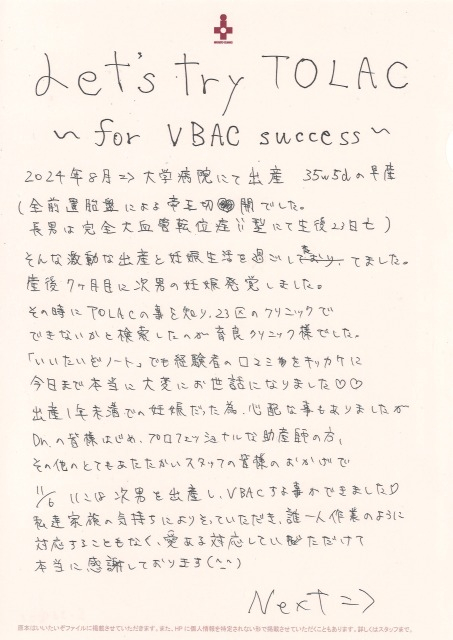 Let's try TOLAC
~ for VBAC success ~
2024年8月⇒大学病院にて出産 35w5dの早産
(全前置胎盤による帝王切開でした。
長男は完全大血管転位症Ⅱ型にて生後23日亡)
そんな激動な出産と妊娠生活を過ごしてました。
産後7ヶ月目に次男の妊娠発覚しました。
その時にTOLACの事を知り、23区のクリニックで
できないかと検索したのが育良クリニック様でした。
「いいたいぞノート」でも経験者の口コミ等をキッカケに
今日まで本当に大変にお世話になりました♡♡
出産1年未満での妊娠だった為、心配な事もありましたが
Dr.の皆様はじめ、プロフェッショナルな助産師の方、
その他のとてもあたたかいスタッフの皆様のおかげで
11/6 には次男を出産し、VBACする事ができました♡
私達家族の気持ちによりそっていただき、誰一人作業のように
対応することもなく、愛ある対応していただけて
本当に感謝しております(^-^)
Next ⇒
原本はいいたいぞファイルに掲載させていただきます。また、HPに個人情報を特定されない形で掲載させていただくこともあります。詳しくはスタッフまで。